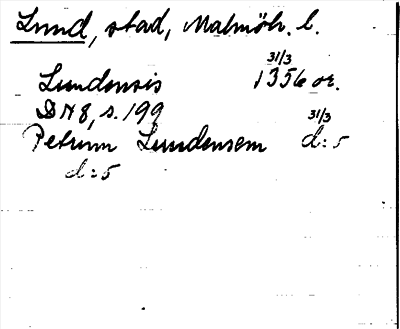 Lund, stad, Malmöh. l.
Lundensis 31/3 1356 or.
DN 8, s. 199
Petrum Lundensem 31/3 d:o
d:o